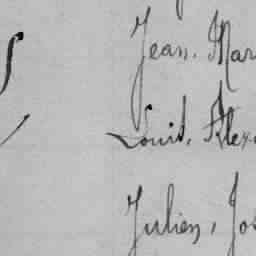 Jean, Mar
Louis, Alex
Julien, Jos